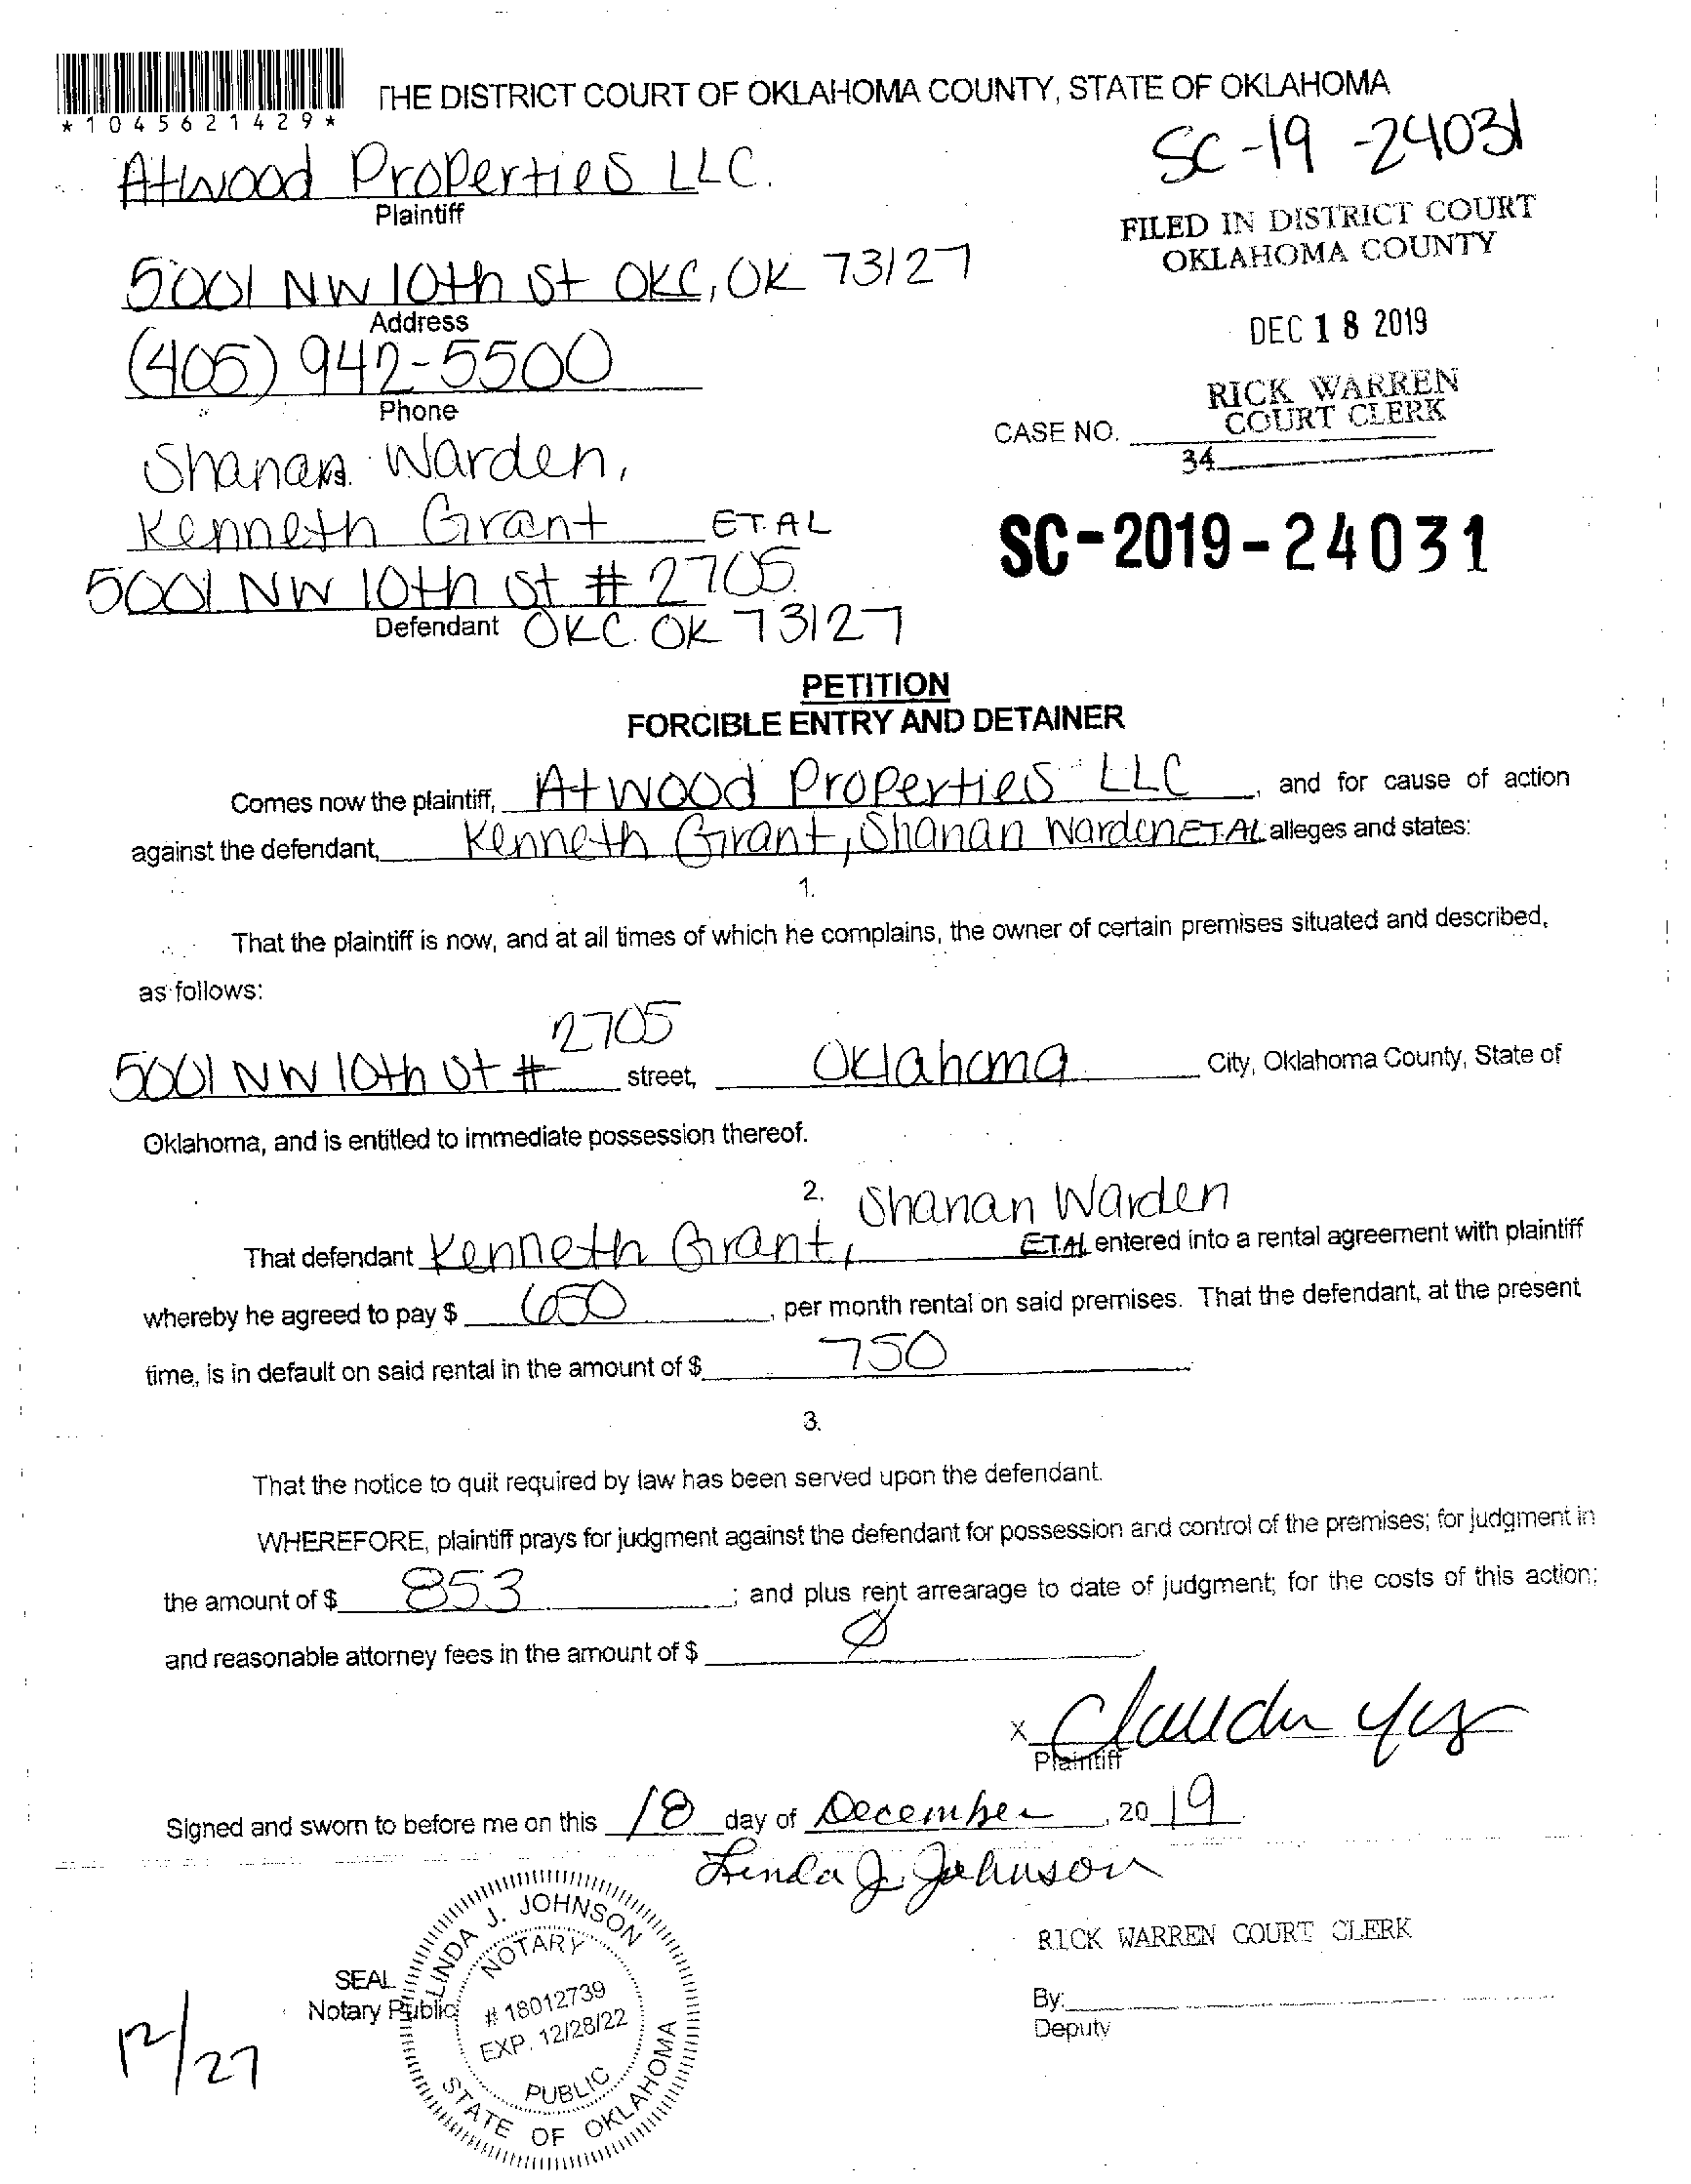 THE DISTRICT COURT OF OKLAHOMA COUNTY, STATE OF OKLAHOMA
*1045621429*
SC-19-24031
Atwood Properties LLC.
Plaintiff
FILED IN DISTRICT COURT
OKLAHOMA COUNTY
5001 NW 10th St OKC, OK 73127
Address
DEC 18 2019
(405) 942-5500
Phone
RICK WARREN
COURT CLERK
CASE NO.
34
Shanan Warden,
Kenneth Grant ET.AL
SC-2019-24031
5001 NW 10th St # 2705
Defendant OKC. OK 73127
PETITION
FORCIBLE ENTRY AND DETAINER
Comes now the plaintiff, Atwood Properties LLC, and for cause of action
against the defendant, Kenneth Grant, Shanan Warden ET.AL alleges and states:
1.
That the plaintiff is now, and at all times of which he complains, the owner of certain premises situated and described,
as follows:
5001 NW 10th St # 2705 street, Oklahoma City, Oklahoma County, State of
Oklahoma, and is entitled to immediate possession thereof.
2.
That defendant Kenneth Grant, Shanan Warden ET.AL entered into a rental agreement with plaintiff
whereby he agreed to pay $ 650, per month rental on said premises. That the defendant, at the present
time, is in default on said rental in the amount of $ 750
3.
That the notice to quit required by law has been served upon the defendant.
WHEREFORE, plaintiff prays for judgment against the defendant for possession and control of the premises; for judgment in
the amount of $ 853; and plus rent arrearage to date of judgment; for the costs of this action;
and reasonable attorney fees in the amount of $ Ø
X
Plaintiff
Signed and sworn to before me on this 18 day of December, 2019
Linda J. Johnson
RICK WARREN COURT CLERK
SEAL
Notary Public
LINDA J. JOHNSON
NOTARY
# 18012739
EXP. 12/28/22
PUBLIC
STATE OF OKLAHOMA
By:
Deputy
12/27